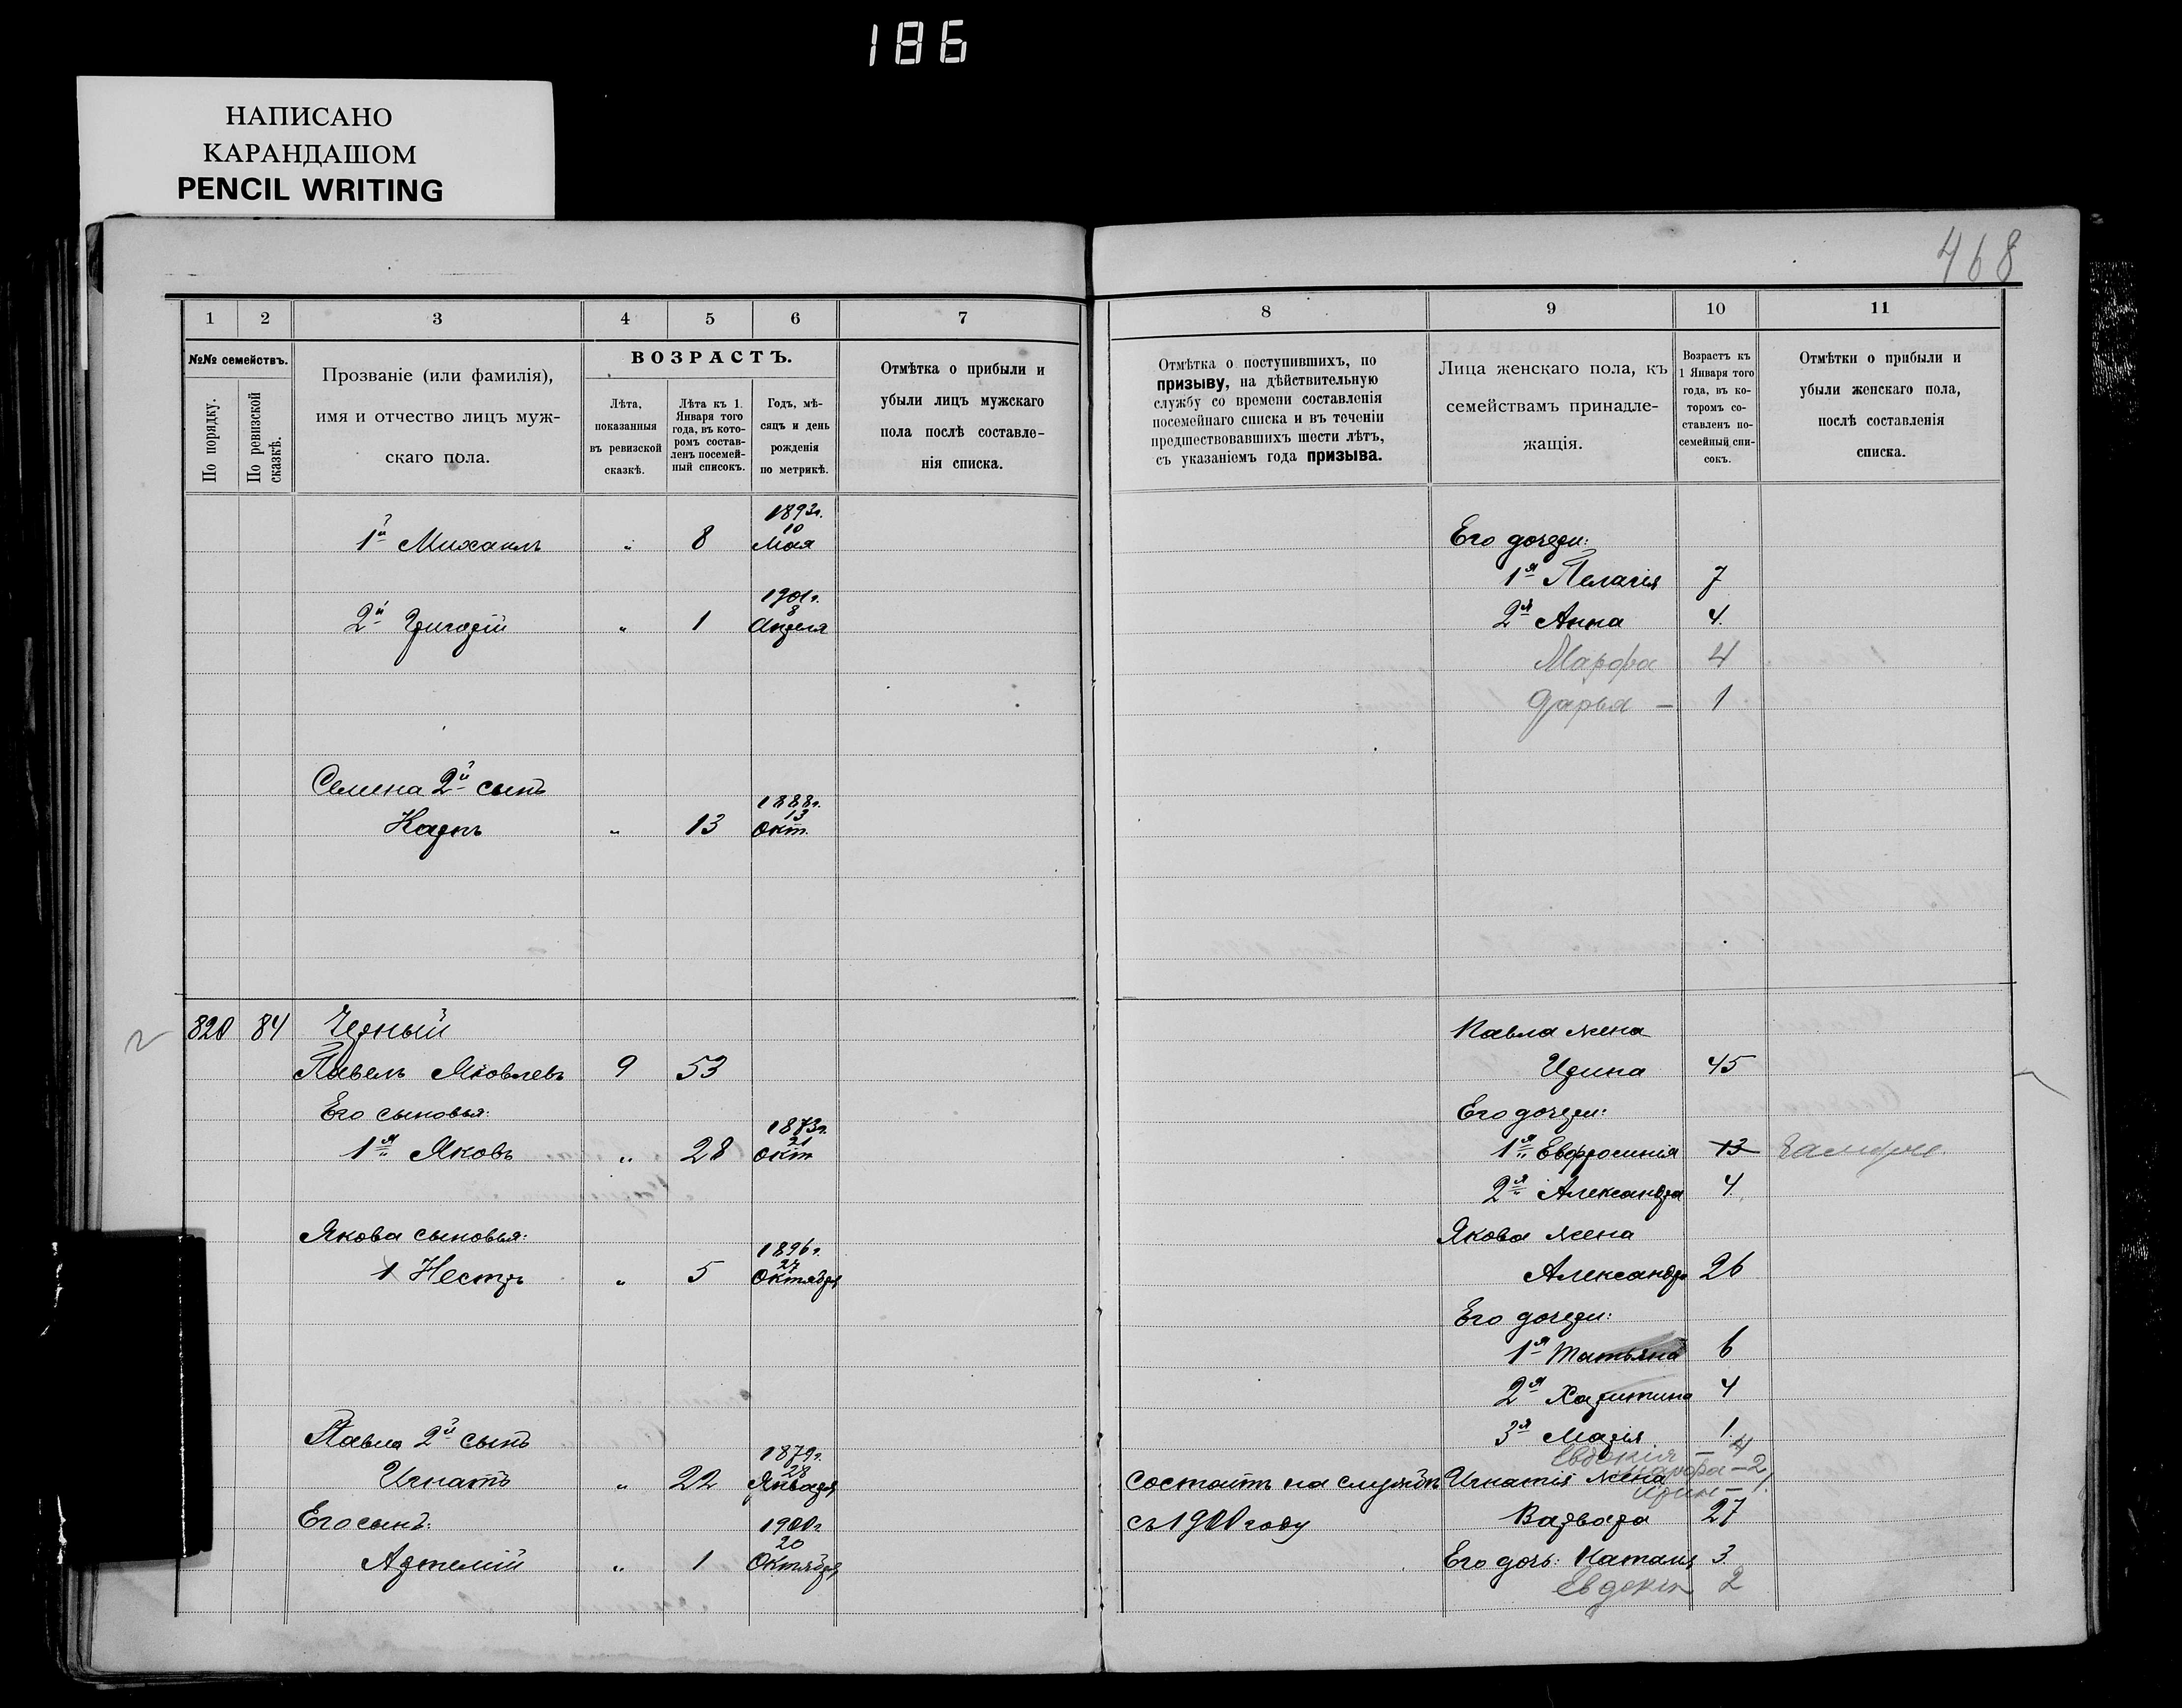 186
НАПИСАНО
КАРАНДАШОМ
PENCIL WRITING
468
1 2 3 4 5 6 7
№№ семействъ.
По порядку.
По ревизской сказкѣ.
Прозваніе (или фамилія),
имя и отчество лицъ муж-
скаго пола.
ВОЗРАСТЪ.
Лѣта,
показанныя
въ ревизской
сказкѣ.
Лѣта къ 1.
Января того
года, въ кото-
ромъ состав-
ленъ посемей-
ный списокъ.
Годъ, мѣ-
сяцъ и день
рожденія
по метрикѣ.
Отмѣтка о прибыли и
убыли лицъ мужскаго
пола послѣ составле-
нія списка.
1893г.
10
1й Михаилъ „ 8 Мая
1901г.
8
2й Григорій „ 1 Апреля
Семена 2й сынъ
1888г.
13
Карпъ „ 13 Окт.
820 84 Черный
Павелъ Яковлевъ 9 53
Его сыновья:
1873г.
21
1й Яковъ „ 28 Окт
Якова сыновья:
1896г.
27
1 Несторъ „ 5 Октября
Павла 2й сынъ
1879г.
28
Игнатъ „ 22 Января
Его сынъ:
1900г.
20
Артемій „ 1 Октября
8 9 10 11
Отмѣтка о поступившихъ, по
призыву, на дѣйствительную
службу со времени составленія
посемейнаго списка и въ теченіи
предшествовавшихъ шести лѣтъ,
съ указаніемъ года призыва.
Лица женскаго пола, къ
семействамъ принадле-
жащія.
Возрастъ къ
1 Января того
года, въ ко-
торомъ со-
ставленъ по-
семейный спи-
сокъ.
Отмѣтки о прибыли и
убыли женскаго пола,
послѣ составленія
списка.
Его дочери:
1я Пелагія 7
2я Анна 4.
Марфа 4
Дарья – 1
Павла жена
Ирина 45
Его дочери:
1я Евфросинія 13
2я Александра 4.
Якова жена
Александра 26
Его дочери:
1я Татьяна 6
2я Харитина 4
3я Марія 1.
Евдокія – 4
Марфа – 2
Ирин – 1.
Состоитъ на службѣ Игнатія жена
съ 1900 году Варвара 27
Его дочь: Наталія 3.
Евдокія 2